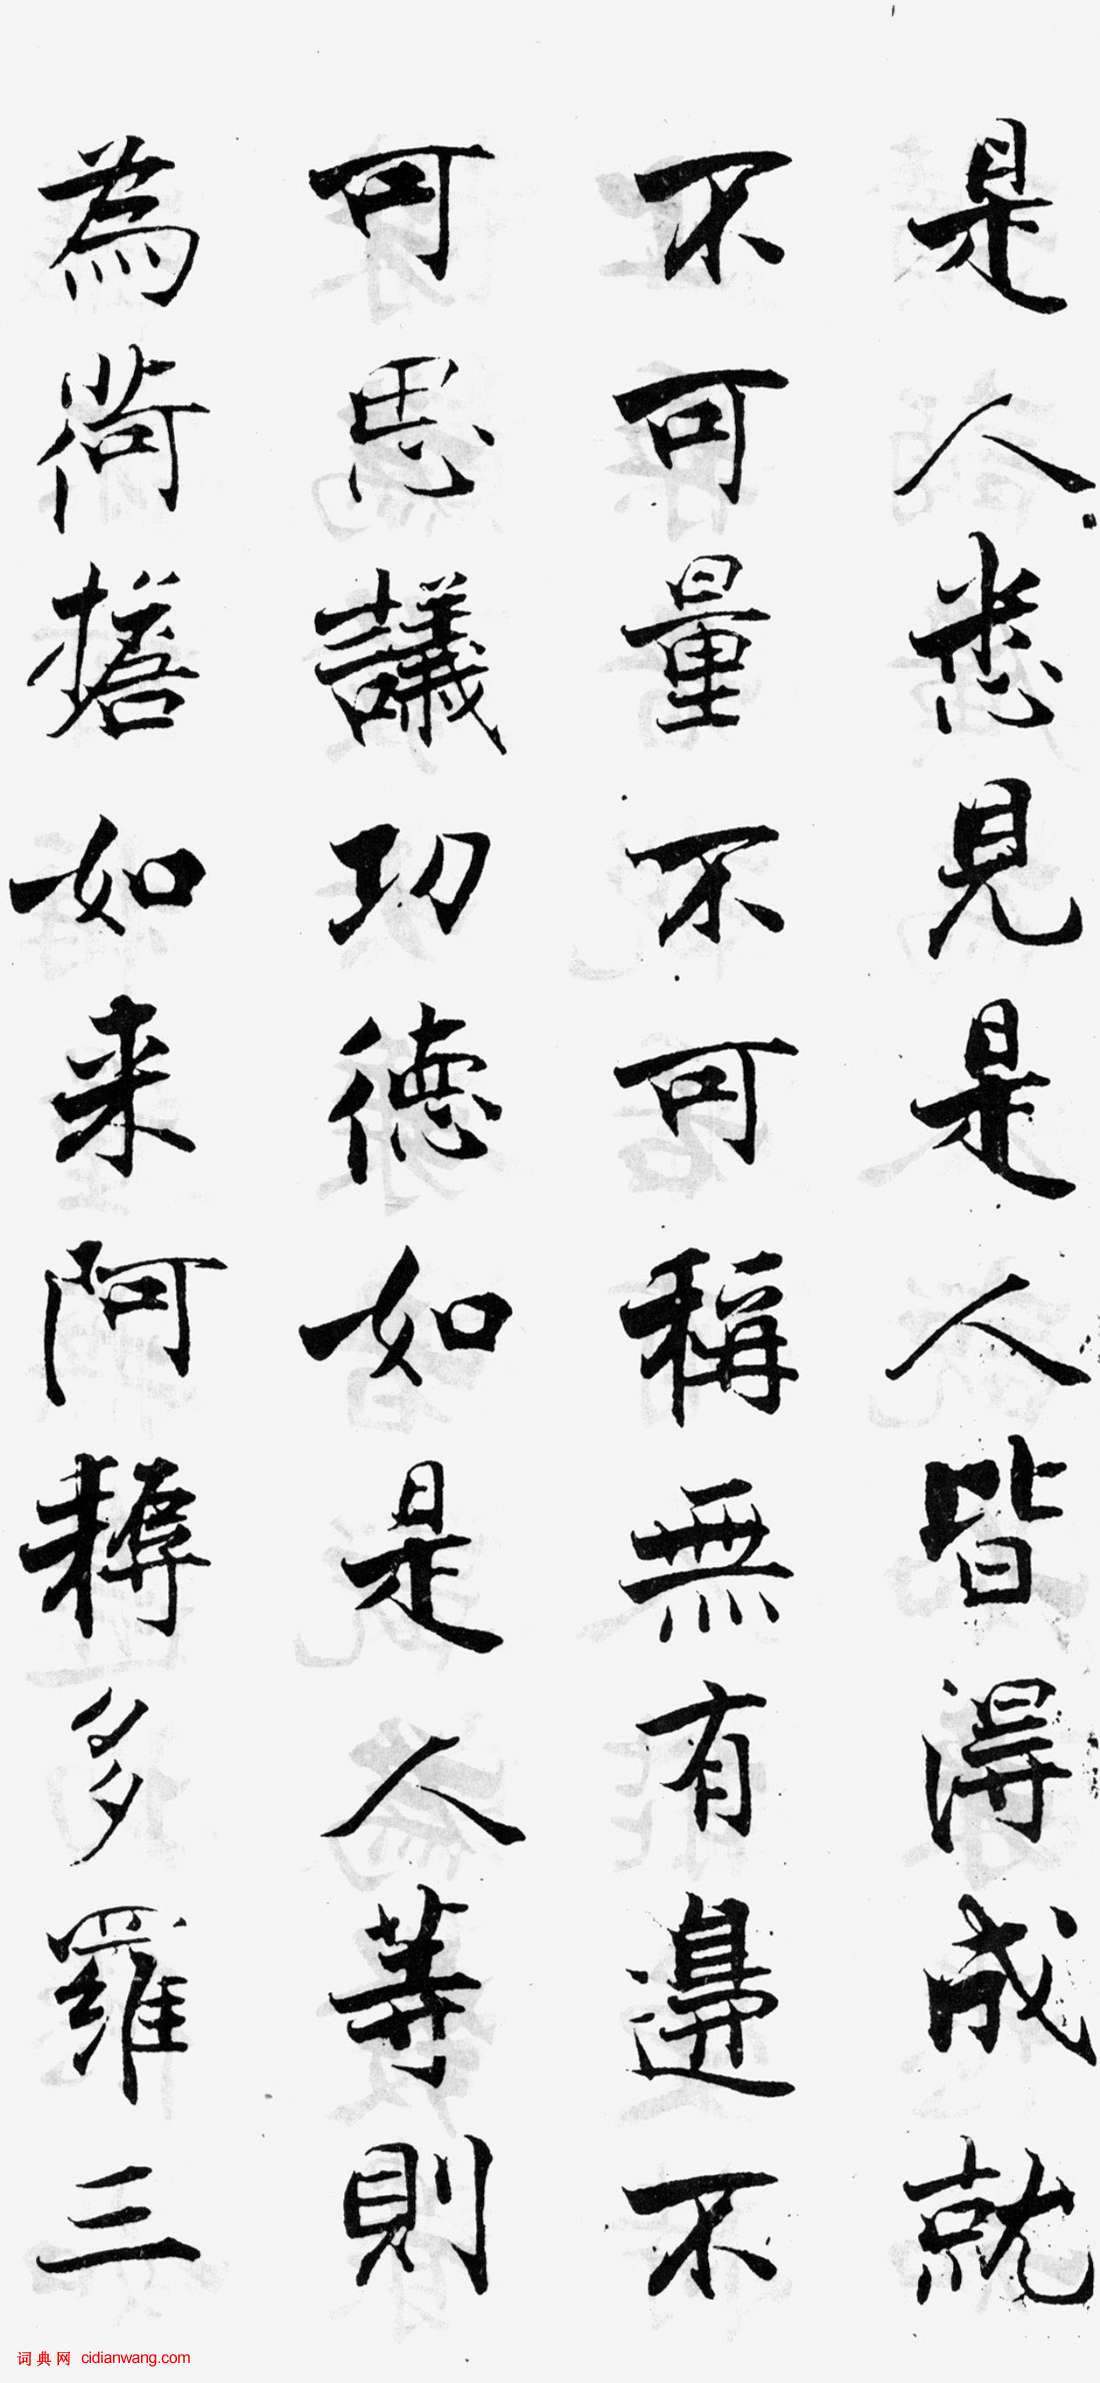 是人悉見是人皆得成就
不可量不可稱無有邊不
可思議功德如是人等則
為荷擔如来阿耨多羅三
词典网 cidianwang.com